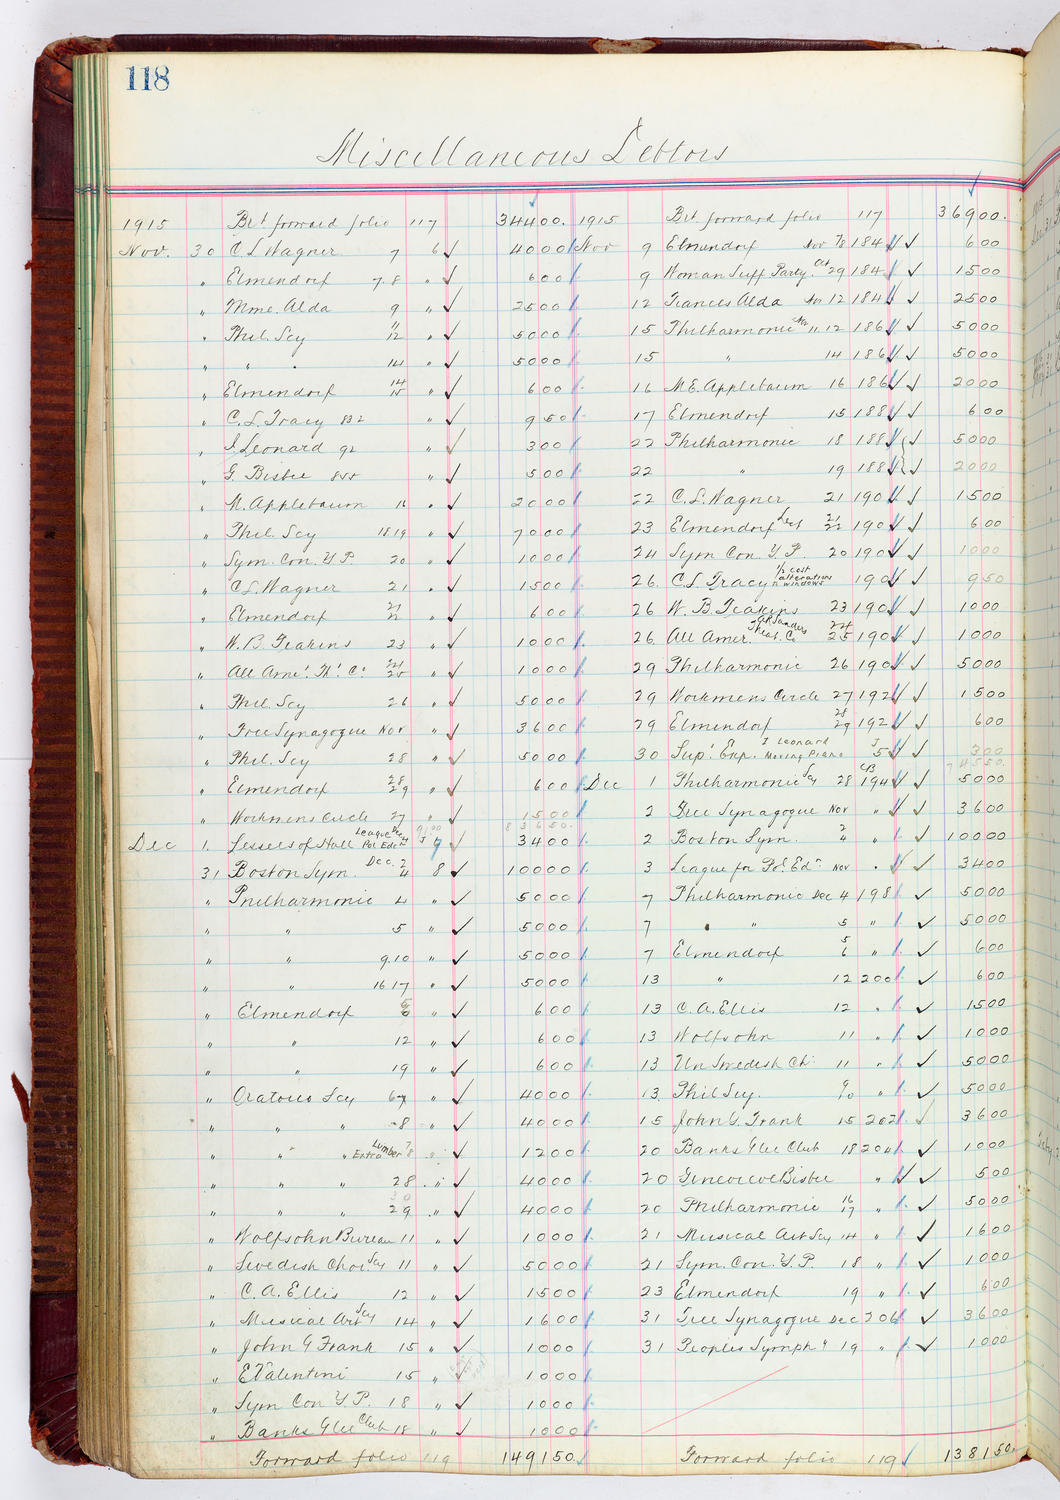 118
Miscellaneous Debtors
1915 Brt forward folio 117 34400.
Nov. 30 C L Wagner 7 6 ✓ 4000
" Elmendorf 7.8 " ✓ 600
" Mme. Alda 9 " ✓ 2500
" Phil. Scy 11 12 " ✓ 5000
" " " 14 " ✓ 5000
" Elmendorf 14 15 " ✓ 600
" C. L. Tracy 832 " ✓ 950
" I. Leonard 92 " ✓ 300
" G. Bisbee 800 " ✓ 500
" M. Applebaum 16 " ✓ 2000
" Phil. Scy 18 19 " ✓ 7000
" Sym. Con. Y. P. 20 " ✓ 1000
" C L Wagner 21 " ✓ 1500
" Elmendorf 21 22 " ✓ 600
" W. B. Feakins 23 " ✓ 1000
" All Ame. Th. Co 24 25 " ✓ 1000
" Phil. Scy 26 " ✓ 5000
" Free Synagogue Nov. " ✓ 3600
" Phil. Scy 28 " ✓ 5000
" Elmendorf 28 29 " ✓ 600
" Workmens Circle 27 " ✓ 1500
83650.
Dec 1. Lessees of Hall League Pol. Edc ✓ 3400
31 Boston Sym. Dec. 2 4 8 ✓ 10000
" Philharmonic 4 " ✓ 5000
" " 5 " ✓ 5000
" " 9.10 " ✓ 5000
" " 16 17 " ✓ 5000
" Elmendorf 5 6 " ✓ 600
" " 12 " ✓ 600
" " 19 " ✓ 600
" Oratorio Scy 67 " ✓ 4000
" " " 8 " ✓ 4000
" " " Extra Lumber 7 8 " ✓ 1200
" " " 28 " ✓ 4000
" " " 29 " ✓ 4000
" Wolfsohn Bureau 11 " ✓ 1000
" Swedish Choi. Scy 11 " ✓ 5000
" C. A. Ellis 12 " ✓ 1500
" Musical Art Scy 14 " ✓ 1600
" John G Frank 15 " ✓ 1000
" E Valentini 15 " ✓ 1000
" Sym Con Y. P. 18 " ✓ 1000
" Banks Glee Club 18 " ✓ 1000
Forward folio 119 149150.
1915 Brt forward folio 117 36900.
Nov 9 Elmendorf Nov 7/8 184 ✓ 600
9 Woman Suff Party. Oct 29 184 ✓ 1500
12 Frances Alda Nov 12 184 ✓ 2500
15 Philharmonic Nov 11. 12 186 ✓ 5000
15 " 14 186 ✓ 5000
16 M. E. Applebaum 16 186 ✓ 2000
17 Elmendorf 15 188 ✓ 600
22 Philharmonic 18 188 ✓ 5000
22 " 19 188 ✓ 2000
22 C. L. Wagner 21 190 ✓ 1500
23 Elmendorf Lect 21 22 190 ✓ 600
24 Sym Con. Y. P. 20 190 ✓ 1000
26. C. L. Tracy 1/2 cost alterations in windows 190 ✓ 950
26 W. B. Feakins 23 190 ✓ 1000
26. All Amer. Theat. Co 24 25 190 ✓ 1000
29 Philharmonic 26 190 ✓ 5000
29 Workmens Circle 27 192 ✓ 1500
29 Elmendorf 28 29 192 ✓ 600
30 Sup. Exp. I Leonard Moving Piano J 5 ✓ 300
74550.
Dec 1 Philharmonic Scy 28 CB 194 ✓ 5000
2 Free Synagogue Nov " ✓ 3600
2 Boston Sym. 2 4 " ✓ 10000
3 League for Pol. Edn Nov " ✓ 3400
7 Philharmonic Dec 4 198 ✓ 5000
7 " 5 " ✓ 5000
7 Elmendorf 5 6 " ✓ 600
13 " 12 200 ✓ 600
13 C. A. Ellis 12 " ✓ 1500
13 Wolfsohn 11 " ✓ 1000
13 Un Swedish Ch. 11 " ✓ 5000
13. Phil Scy. 9 10 " ✓ 5000
15 John G. Frank 15 202 ✓ 3600
20 Banks Glee Club 18 204 ✓ 1000
20 Genevieve Bisbee " ✓ 500
20 Philharmonic 16 17 " ✓ 5000
21 Musical Art Scy 14 " ✓ 1600
21 Sym. Con. Y. P. 18 " ✓ 1000
23 Elmendorf 19 " ✓ 600
31 Free Synagogue Dec 206 ✓ 3600
31 Peoples Symphy 19 " ✓ 1000
Forward folio 119 138150.